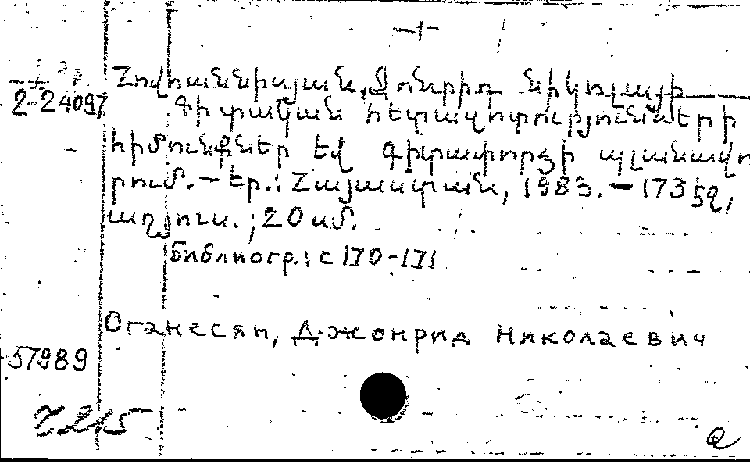 Հովհաննիսյան, Ջոնրիդ Նիկոլայի
2-24097
Գիտական հետազոտությունների
հիմունքներ եվ գիտափորձի պլանավո-
րում. — Եր.: Հայաստան, 1983. — 173 էջ,
աղյուս.; 20 սմ.
Библиогр.: с 170-171
Оганесян, Джонрид Николаевич
57989